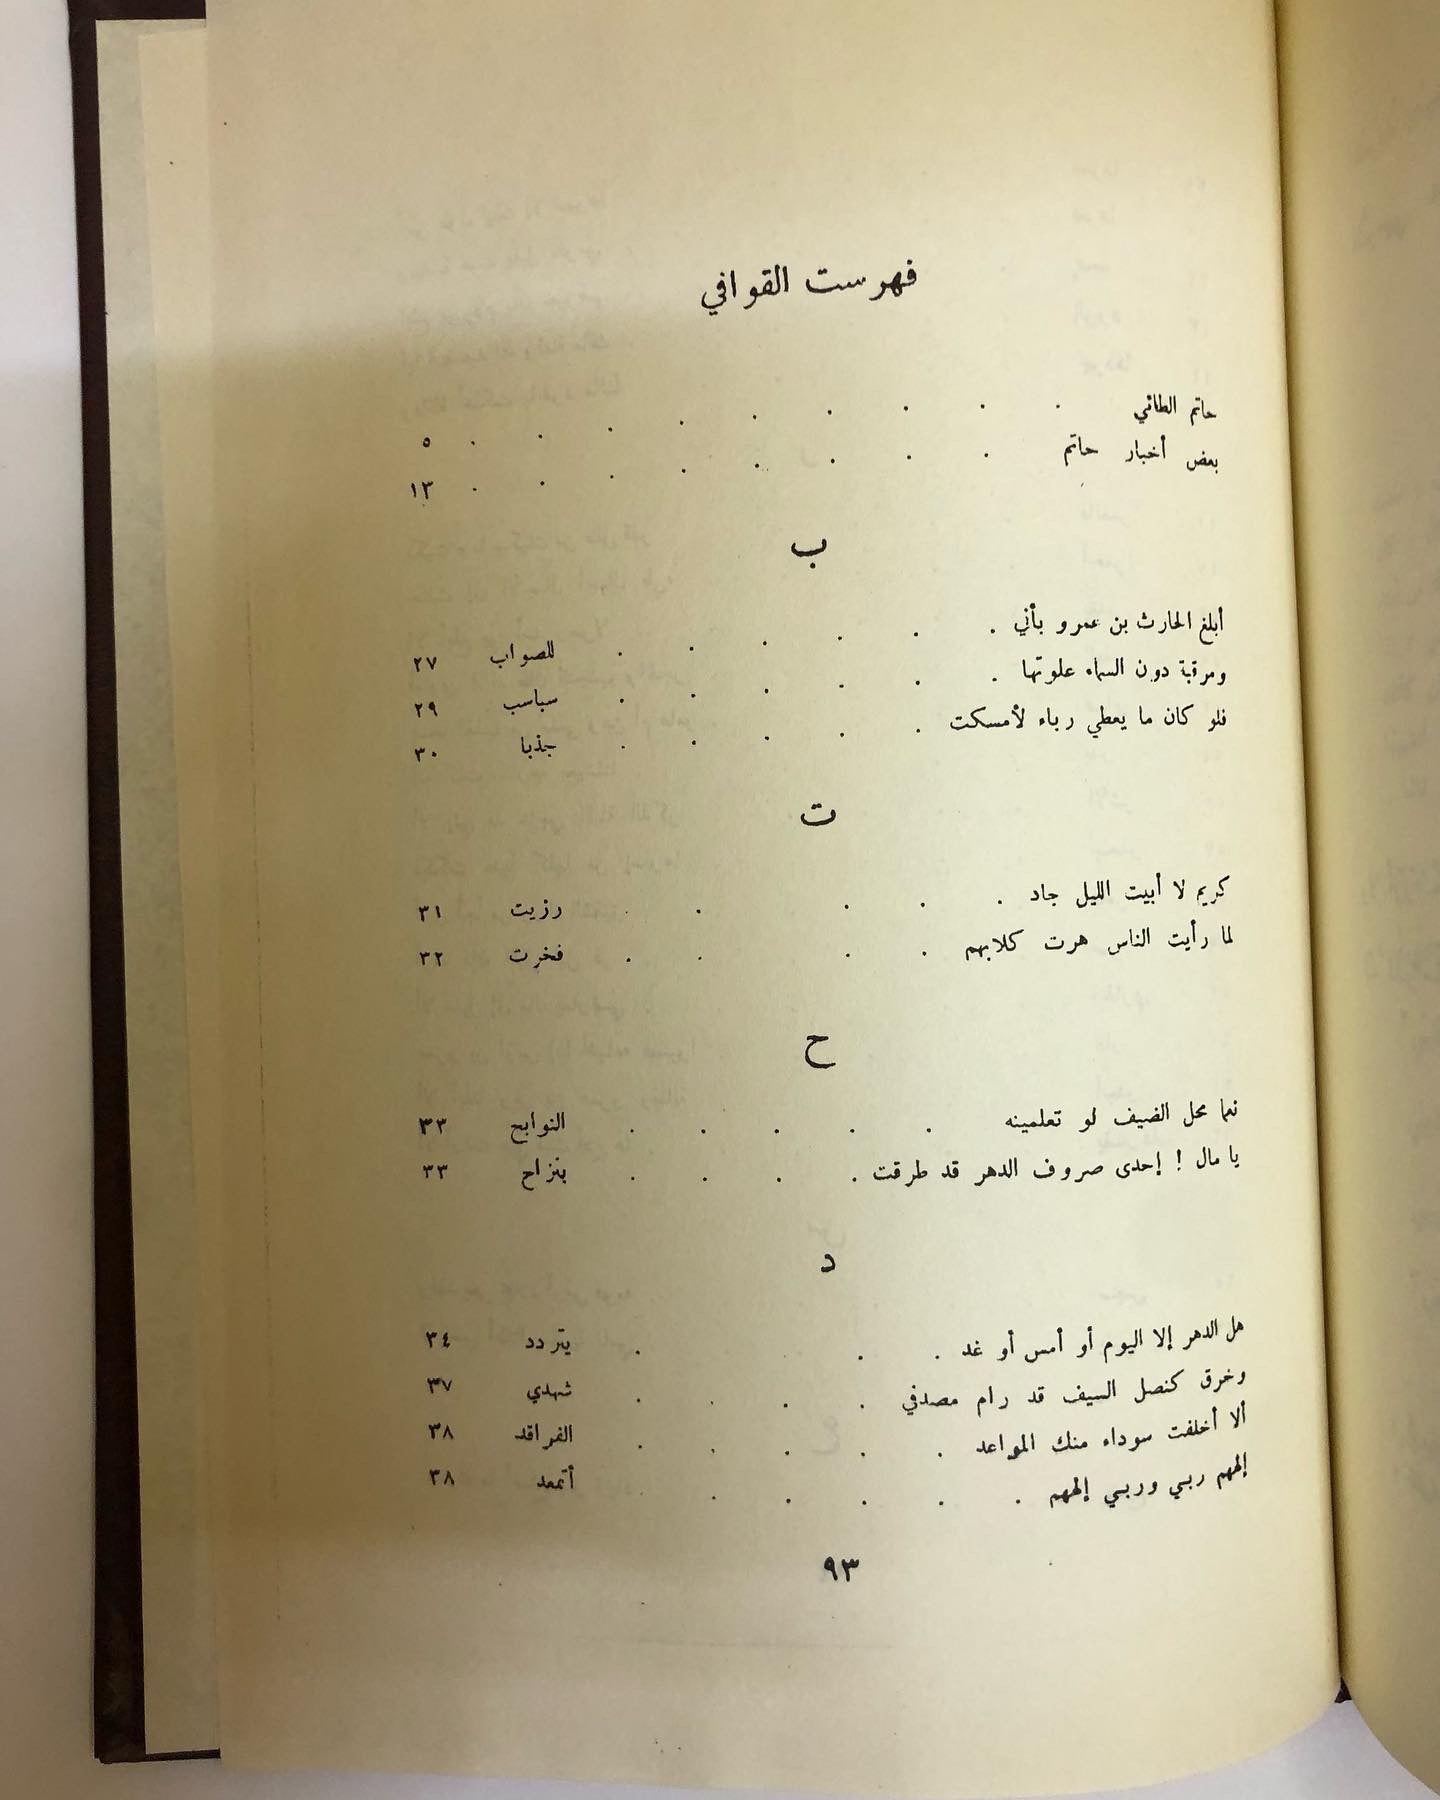 فهرست القوافي
حاتم الطائي . . . . . . . . . ٥
بعض أخبار حاتم . . . . . . . . ١٣
ب
أبلغ الحارث بن عمرو بأني . . . . . . للصواب ٢٧
ومرقبة دون السماء علوتها . . . . . . سباسب ٢٩
فلو كان ما يعطي رباء لأمسكت . . . . . جذبا ٣٠
ت
كريم لا أبيت الليل جاد . . . . . رزيت ٣١
لما رأيت الناس هرت كلابهم . . . . فخرت ٣٢
ح
نعما محل الضيف لو تعلمينه . . . . . النوابح ٣٣
يا مال ! إحدى صروف الدهر قد طرقت . . . . بنزاح ٣٣
د
هل الدهر إلا اليوم أو أمس أو غد . . . يتردد ٣٤
وخرق كنصل السيف قد رام مصدفي . . . . شهدي ٣٧
ألا أخلفت سوداء منك المواعد . . . . . الفراقد ٣٨
إلههم ربي وربي إلههم . . . . . . أتمعد ٣٨
٩٣